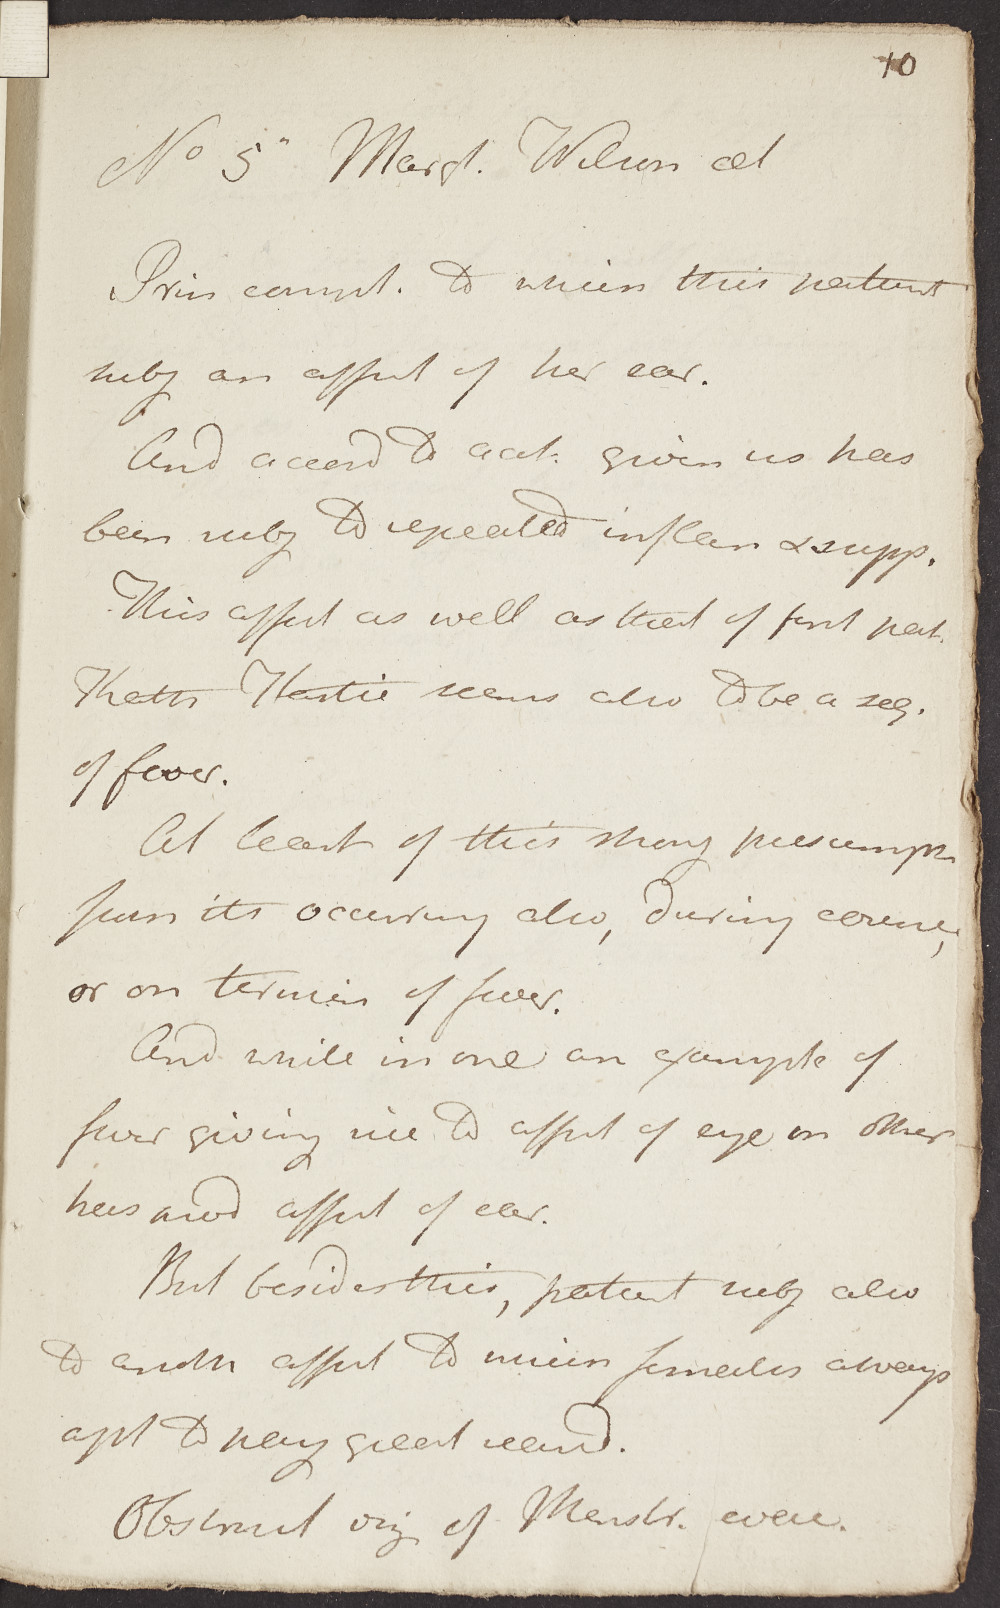 10
No 5" Margt. Wilson æt
Prin compt. to which this patient
subj an affect of her ear.
And accord to acct. given us has
been subj to repeated inflam & supp.
This affect as well as that of first pat.
Kath Hastie seems also to be a seq.
of fever.
At least of this strong presumpn
from its occurring also, during course,
or on termin of fever.
And while in one an example of
fever giving rise to affect of eye in other
has prod affect of ear.
But besides this, patient subj also
to anothr affect to which females always
apt to pay great regard.
Obstruct viz of Menstr. evac.